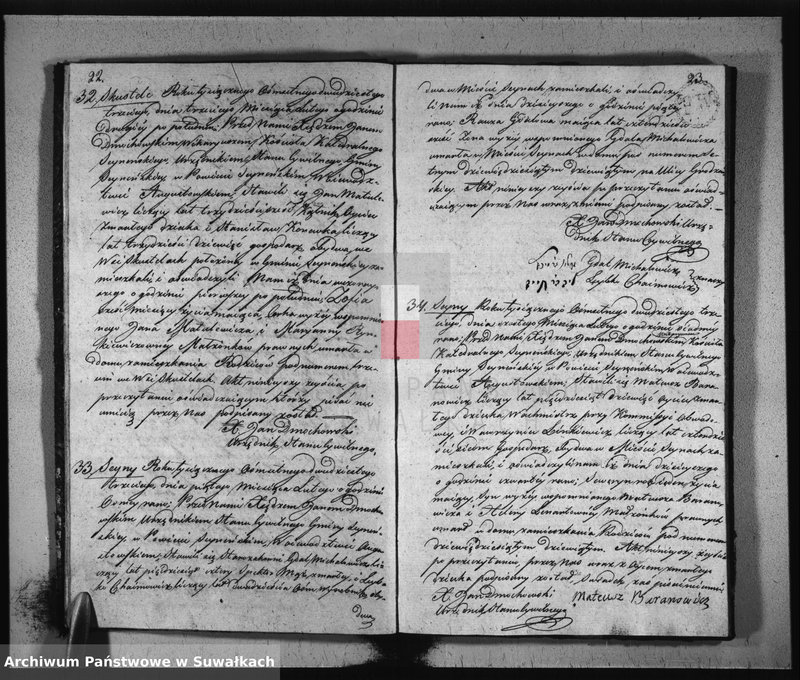 22.
32, Skustele Roku tysiącznego Ośmsetnego dwudziestego
trzeciego, dnia trzeciego Miesiąca Lutego o godzinie
drugiey po południu; Przed Nami Xiędzem Janem
Dmochowskim Wikaryuszem Kościoła Katedralnego
Seyneńskiego, Urzędnikiem Stanu Cywilnego Gminy
Seyneńskiey w Powiecie Seyneńskim Wojewódz-
twie Augustowskim; Stawili się Jan Matule-
wicz liczący lat trzydzieści Oyciec
zmarłego dziecka i Stanisław liczący
lat trzydzieści dziewięć gospodarz, obydwa we
Wsi Skustelach położoney w Gminie Seyneńskiey za-
mieszkali; i oświadczyli Nam iż dnia wczoray-
szego o godzinie pierwszey po południu, Zofia
sześć Miesięcy życia maiąca, Corka wyżey wspomnio-
nego Jana Matulewicza i Maryanny
Małżonków prawnych, umarła w
domu zamieszkania Rodziców pod numerem
we Wsi Skustelach. Akt ninieyszy zeyścia po
przeczytaniu oświadczaiącym którzy pisać nie
umieią przez Nas podpisany został. —
X. Jan Dmochowski
Urzędnik Stanu Cywilnego.
33. Seyny Roku tysiącznego Ośmsetnego dwudziestego
trzeciego, dnia piątego Miesiąca Lutego o godzinie
rano; Przed Nami Xiędzem Janem Dmocho-
wskim Urzędnikiem Stanu Cywilnego Gminy Seyneń-
skiey w Powiecie Seyneńskim, Wojewódtwie Augu-
stowskim; Stawili się Starozakonni Gdal Michałowicz li-
czący lat pięćdziesiąt cztery Mąż zmarłey, i Leyba
Chaimowicz liczący lat dwadzieścia Ośm, wyrobnik oby-
dwa
23
dwa w Mieście Seynach zamieszkali; i oświadczy-
li Nam iż dnia dzisieyszego o godzinie piątey
rano; Gdalowa maiąca lat czterdzieści
sześć Żona wyżey wspomnionego Gdala Michałowicza
umarła w Mieście Seynach w domu pod numerem se-
tnym dziewięćdziesiątym dziewiątym na Ulicy Grodzień-
skiey. Akt ninieyszy zeyścia po przeczytaniu oświad-
czaiącym przez Nas wraz z Niemi podpisany został. —
X. Jan Dmochowski Urzę-
dnik Stanu Cywilnego
Gdal Michałowicz
Leyba Chaimowicz
34. Seyny Roku tysiącznego Ośmsetnego dwudziestego trze-
ciego, dnia szóstego Miesiąca Lutego o godzinie ósmey
rano; Przed Nami Xiędzem Janem Dmochowskim Kościoła
Katedralnego Seyneńskiego, Urzędnikiem Stanu Cywilnego
Gminy Seyneńskiey w Powiecie Seyneńskim, w Wojewódz-
twie Augustowskim; Stawili się Mateusz Bara-
nowicz liczący lat pięćdziesiąt dziewięć Oyciec zmar-
łego dziecka Wachmistrz przy Kommissyi Obwodo-
wey, i Wawrzyniec Sienkiewicz liczący lat czterdzie-
ści Gospodarz, Obydwa w Mieście Seynach za-
mieszkali; i oświadczyli Nam iż dnia dzisieyszego
o godzinie czwartey rano, Seweryn życia
maiący, Syn wyżey wspomnionego Mateusza Barano-
wicza i Heleny Małżonków prawnych
umarł w domu zamieszkania Rodziców pod numerem
dziewięćdziesiątym dziewiątym. Akt ninieyszy zeyścia
po przeczytaniu, przez Nas wraz z Oycem zmarłego
dziecka podpisany został, Świadek zaś pisać nieumie.
X. Jan Dmochowski
Urzędnik Stanu Cywilnego
Mateusz Baranowicz
Archiwum Państwowe w Suwałkach